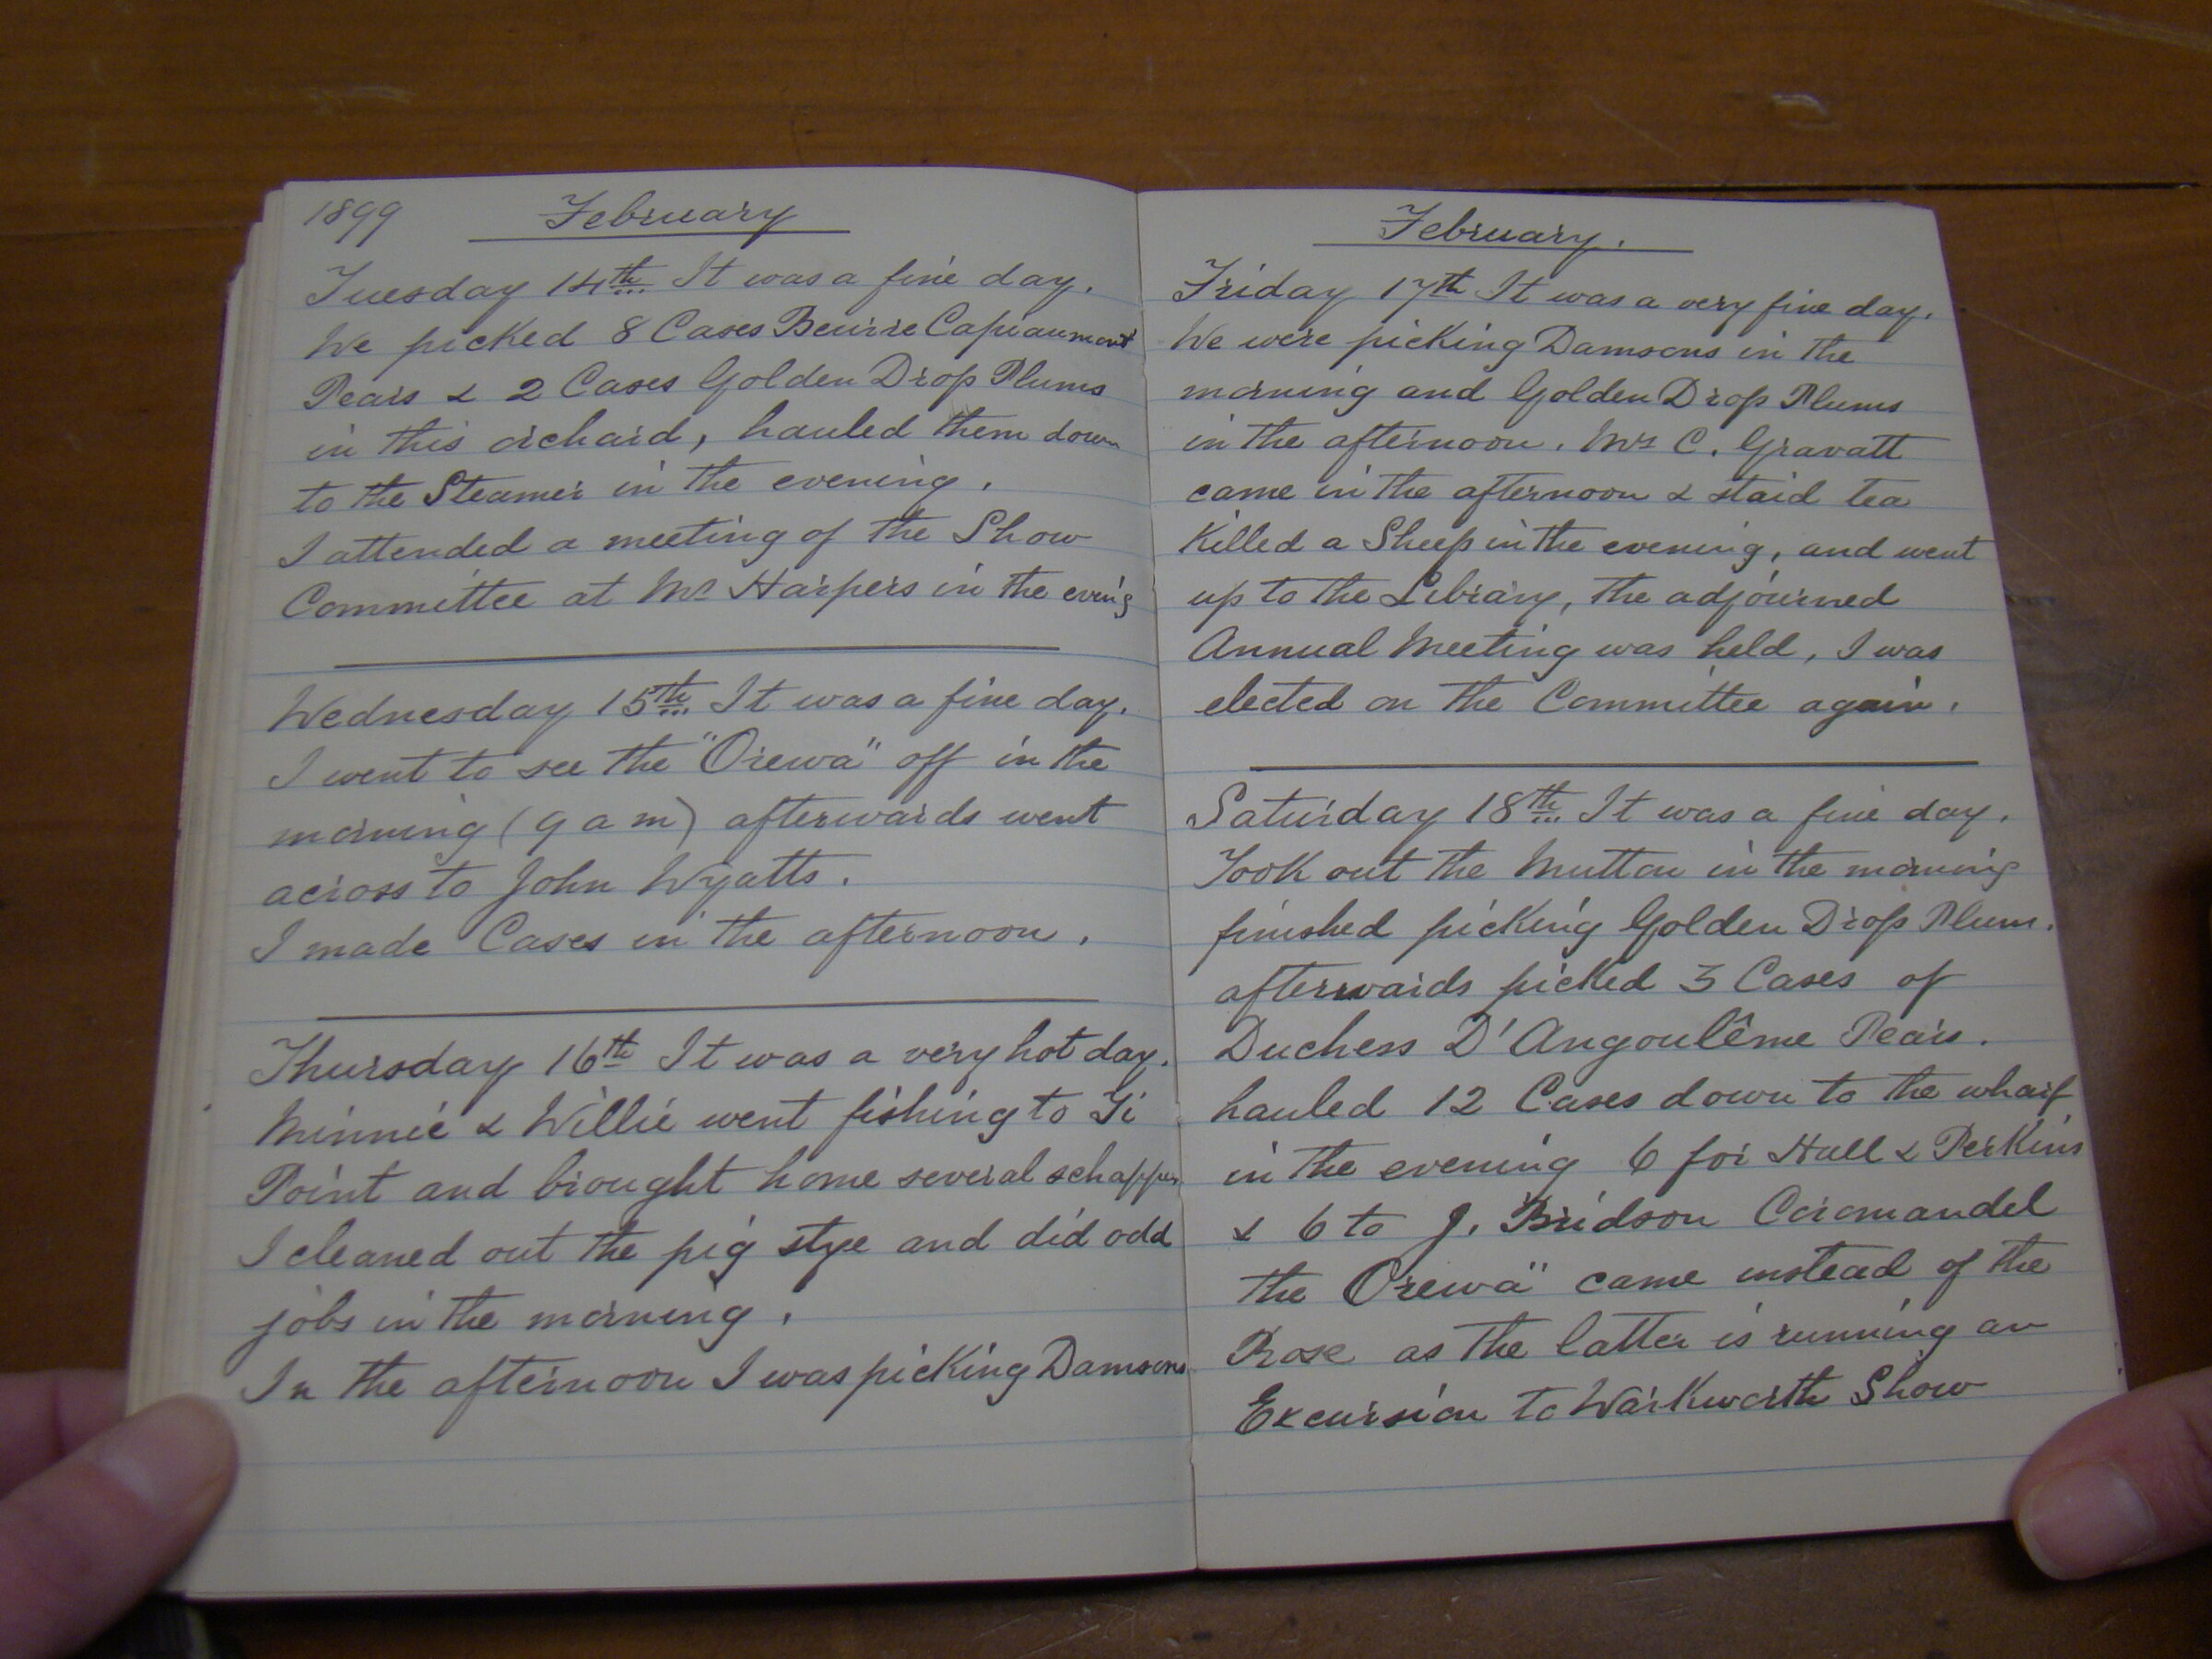 1899 February
Tuesday 14th It was a fine day.
We picked 8 Cases Beurre Capiaumont
Pears & 2 Cases Golden Drop Plums
in this orchard, hauled them down
to the Steamer in the evening.
I attended a meeting of the Show
Committee at Mr Harpers in the eveng
Wednesday 15th It was a fine day.
I went to see the "Orewa" off in the
morning (9 a m) afterwards went
across to John Wyatts.
I made Cases in the afternoon.
Thursday 16th It was a very hot day.
Minnie & Willie went fishing to Ti
Point and brought home several schapper
I cleaned out the pig stye and did odd
jobs in the morning.
In the afternoon I was picking Damsons
February.
Friday 17th It was a very fine day.
We were picking Damsons in the
morning and Golden Drop Plums
in the afternoon. Mrs C. Gravatt
came in the afternoon & staid tea
Killed a Sheep in the evening, and went
up to the Library, the adjourned
Annual Meeting was held, I was
elected on the Committee again.
Saturday 18th It was a fine day.
Took out the Mutton in the morning
finished picking Golden Drop Plum.
afterwards picked 3 Cases of
Duchess D'Angoulême Pears.
hauled 12 Cases down to the wharf
in the evening 6 for Hull & Perkins
& 6 to J. Bridson Coromandel
the Orewa" came instead of the
Rose as the latter is running an
Excursion to Warkworth Show